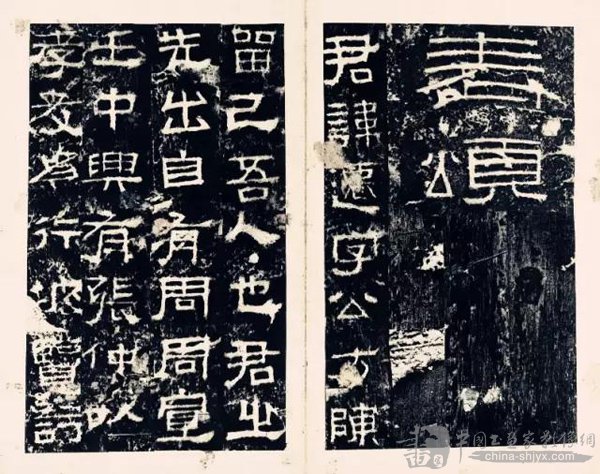 表頌
君諱遷字公方陳
留己吾人也君之
先出自有周周宣
王中興有張仲以
孝友為行披覽詩
中國書畫家影像網
china-shjyx.com